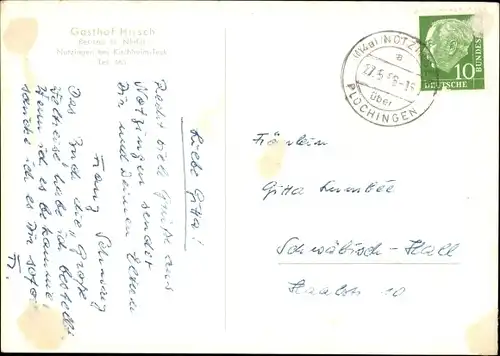 Gasthof Hirsch
Notzingen bei Kirchheim-Teck
Tel. 363
Liebe Gitta!
Recht viele Grüße aus
Notzingen sendet
Dir und Deinen Eltern
Franz
Das Buch die "Große
habe ich bestellt
Wenn ich es bekomme
sende ich es Dir sofort
Fr.
(14a) NOTZINGEN
a
27.5.58-18
über
PLOCHINGEN
10
DEUTSCHE BUNDESPOST
Fräulein
Gitta
Schwäbisch-Hall
Haalstr 10